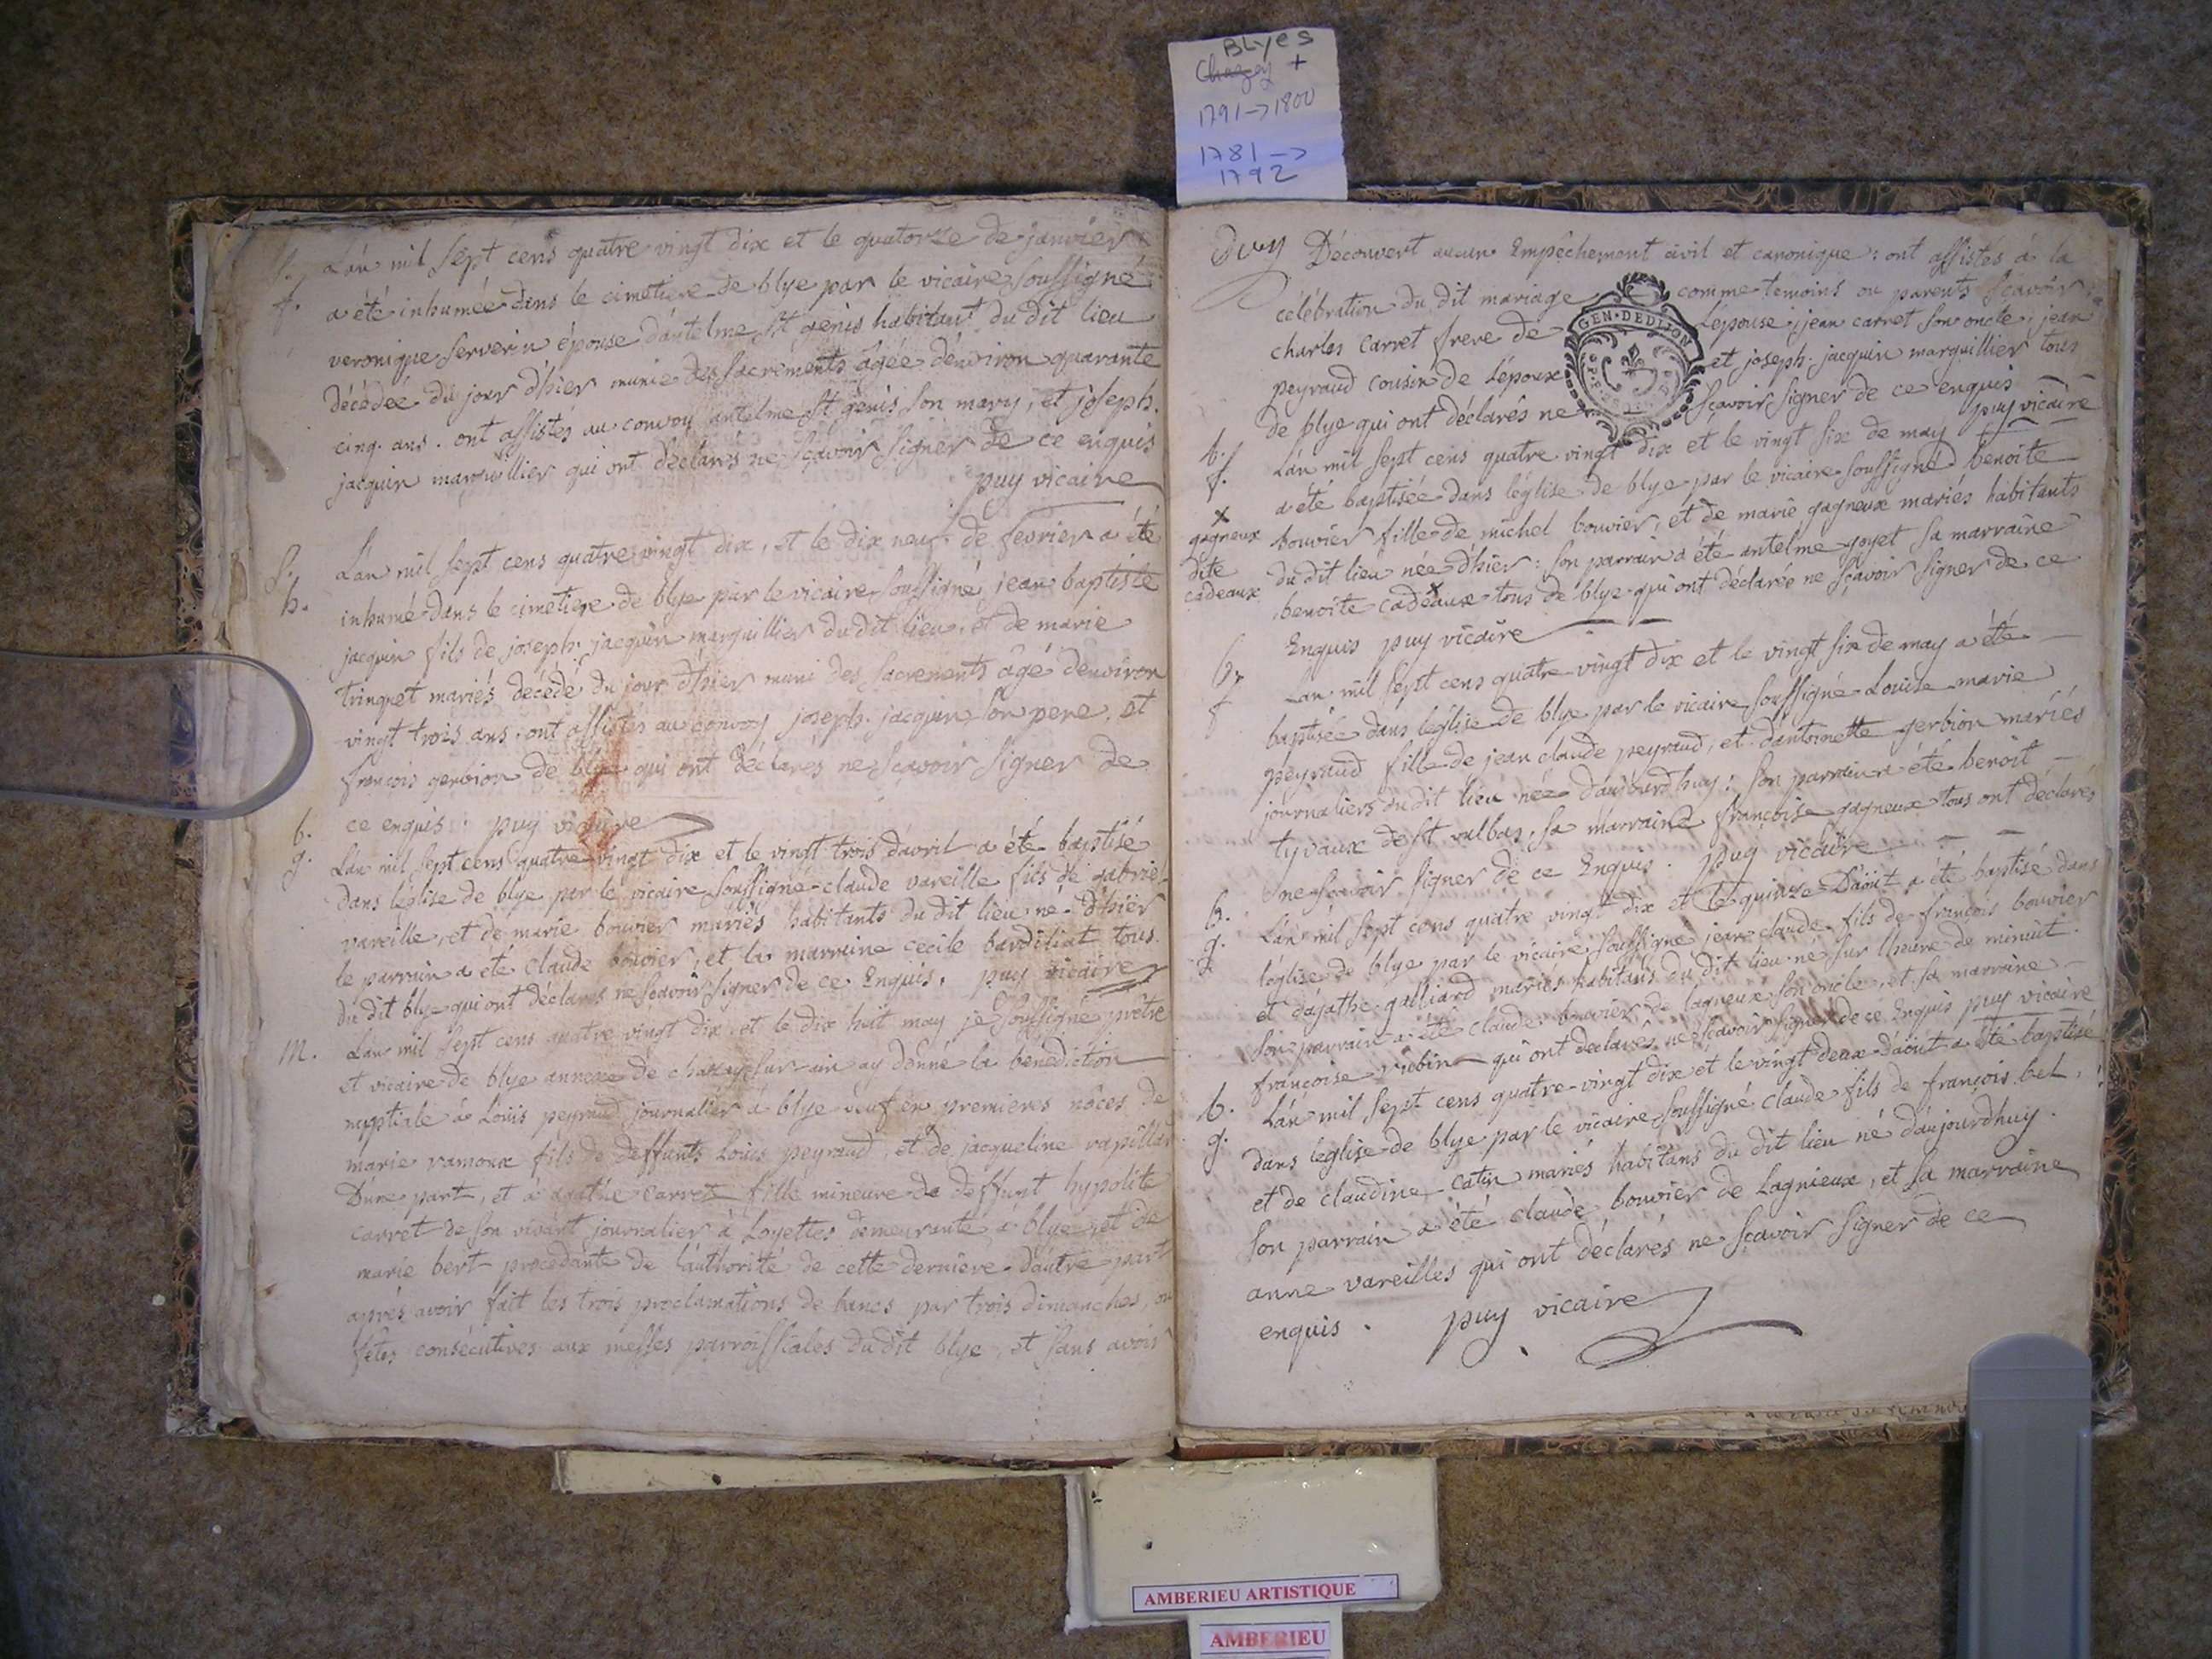 BLyes
Chazey +
1791 -> 1800
1781 ->
1792
S.
f.
L'an mil sept cens quatre vingt dix et le quatorze de janvier
a été inhumée dans le cimetiere de blye par le vicaire soussigné
veronique serverin épouse d'antelme St genis habitant du dit lieu
décédée du jour d'hier munie des sacrements âgée d'environ quarante
cinq ans. ont assistés au convoy antelme St genis son mary, et joseph
jacquin marguillier qui ont déclarés ne sçavoir signer de ce enquis
puy vicaire
S.
h.
L'an mil sept cens quatre vingt dix, et le dix neuf de fevrier a été
inhumé dans le cimetiere de blye par le vicaire soussigné, jean baptiste
jacquin fils de joseph jacquin marguillier du dit lieu, et de marie
tringuet mariés décédé du jour d'hier muni des sacrements âgé d'environ
vingt trois ans. ont assistés au convoy joseph jacquin son pere, et
françois gerbion de blye qui ont déclarés ne sçavoir signer de
ce enquis. puy vicaire
b.
g.
L'an mil sept cens quatre vingt dix et le vingt trois d'avril a été baptisé
dans l'église de blye par le vicaire soussigné claude vareille fils de gabriel
vareille, et de marie bouvier mariés habitants du dit lieu né d'hier
le parrain a été claude bouvier, et la marraine cecile bardiliat tous
du dit blye qui ont déclarés ne sçavoir signer de ce enquis. puy vicaire
m.
L'an mil sept cens quatre vingt dix et le dix huit may je soussigné prêtre
et vicaire de blye annexe de chazay sur ain ay donné la benediction
nuptiale à Louis peyraud journalier à blye veuf en premieres nôces de
marie ramoux fils de deffunts Louis peyraud, et de jacqueline rapillar
d'une part, et à agathe carret fille mineure de deffunt hypolite
carret de son vivant journalier à Loyettes demeurante à blye, et de
marie bert procédante de l'authorité de cette derniere d'autre part
après avoir fait les trois proclamations de bancs par trois dimanches, ou
fêtes consécutives aux messes parroissiales du dit blye, et sans avoir
Découvert aucun Empêchement civil et canonique: ont assistés à la
célébration du dit mariage comme temoins ou parents sçavoir
charles carret frere de L'epouse, jean carret son oncle, jean
peyraud cousin de L'époux et joseph jacquin marguillier tous
de blye qui ont déclarés ne sçavoir signer de ce enquis
puy vicaire
GEN·DE LION
b.
f.
L'an mil sept cens quatre vingt dix et le vingt six de may
a été baptisée dans l'église de blye par le vicaire soussigné benoite
bouvier fille de michel bouvier, et de marie gagneux mariés habitants
du dit lieu née d'hier: son parrain a été antelme goyet sa marraine
benoite cadeaux tous de blye qui ont déclarés ne sçavoir signer de ce
Enquis puy vicaire
x
gagneux
dite
cadeaux
b.
f
L'an mil sept cens quatre vingt dix et le vingt six de may a été
baptisée dans l'église de blye par le vicaire soussigné Louise marie
peyraud fille de jean claude peyraud, et d'antoinette gerbion mariés
journaliers du dit lieu née d'aujourd'huy: son parrain a été benoit
tyvaux de St vulbas, sa marraine françoise gagneux tous ont déclarés
ne sçavoir signer de ce Enquis. puy vicaire
B.
g.
L'an mil sept cens quatre vingt dix et le quinze D'août a été baptisé dans
l'église de blye par le vicaire soussigné jean claude fils de françois bouvier
et d'agathe galliard mariés habitans du dit lieu né sur l'heure de minuit.
son parrain a été claude bouvier de lagneux son oncle, et sa marraine
françoise rubin qui ont déclarés ne sçavoir signer de ce Enquis puy vicaire
b.
g.
L'an mil sept cens quatre-vingt dix et le vingt deux d'août a été baptisé
dans l'église de blye par le vicaire soussigné claude fils de françois bel,
et de claudine catin mariés habitans du dit lieu né d'aujourdhuy.
son parrain a été claude bouvier de Lagnieux, et sa marraine
anne vareilles qui ont déclarés ne sçavoir signer de ce
enquis. puy vicaire
AMBERIEU ARTISTIQUE
AMBERIEU